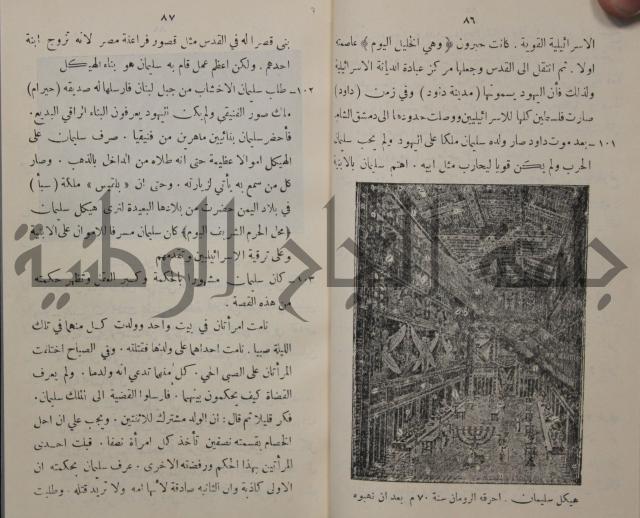 ٨٦
الاسرائيلية القوية . كانت حبرون ﴿ وهي الخليل اليوم ﴾ عاصمته
اولا . ثم انتقل الى القدس وجعلها مركز عبادة الديانة الاسرائيلية
ولذلك فأن اليهود يسمونها ( مدينة داود ) وفي زمن ( داود )
صارت فلسطين كلها للاسرائيليين ووصلت حدودها الى دمشق الشام
١٠١ – بعد موت داود صار ولده سليمان ملكا على اليهود ولم يحب سليمان
الحرب ولم يكن قويا ليحارب مثل ابيه . اهتم سليمان بالابنية
هيكل سليمان . احرقه الرومان سنة ٧٠ م بعد ان نهبوه
٨٧
بنى قصرا له في القدس مثل قصور فراعنة مصر لانه تزوج ابنة
احدهم . ولكن اعظم عمل قام به سليمان هو بناء الهيكل
١٠٢ – طلب سليمان الاخشاب من جبل لبنان فارسلها له صديقه ( حيرام )
ملك صور الفنيقي ولم يكن اليهود يعرفون البناء الراقي البديع .
فأحضر سليمان بنائيين ماهرين من فنيقيا . صرف سليمان على
الهيكل اموالا عظيمة حتى انه طلاه من الداخل بالذهب . وصار
كل من سمع به يأتي لزيارته . وحتى ان « بلقيس » ملكة ( سبأ )
في بلاد اليمن حضرت من بلادها البعيدة لترى هيكل سليمان
﴿ محل الحرم الشريف اليوم ﴾ كان سليمان مسرفا للاموال على الابنية
وعلى ترقية الاسرائيليين وتقدمهم
١٠٣ – كان سليمان مشهورا بالحكمة وكبر العقل وتظهر حكمته
من هذه القصة .
نامت امرأتان في بيت واحد وولدت كل منهما في تلك
الليلة صبيا . نامت احداهما على ولدها فقتلته . وفي الصباح اختلفت
المرأتان على الصبي الحي . كل منهما تدعي انه ولدها . ولم يعرف
القضاة كيف يحكمون بينهما . فارسلوا القضية الى الملك سليمان .
فكر قليلا ثم قال : ان الولد مشترك للاثنتين . ويجب علي ان احل
الخصام بقسمته نصفين تأخذ كل امرأة نصفا . قبلت احدى
المرأتين بهذا الحكم ورفضته الاخرى . عرف سليمان بحكمته ان
الاولى كاذبة وان الثانية صادقة لأنها امه ولا تريد قتله . وطلبت
جمعية النجاح الوطنية